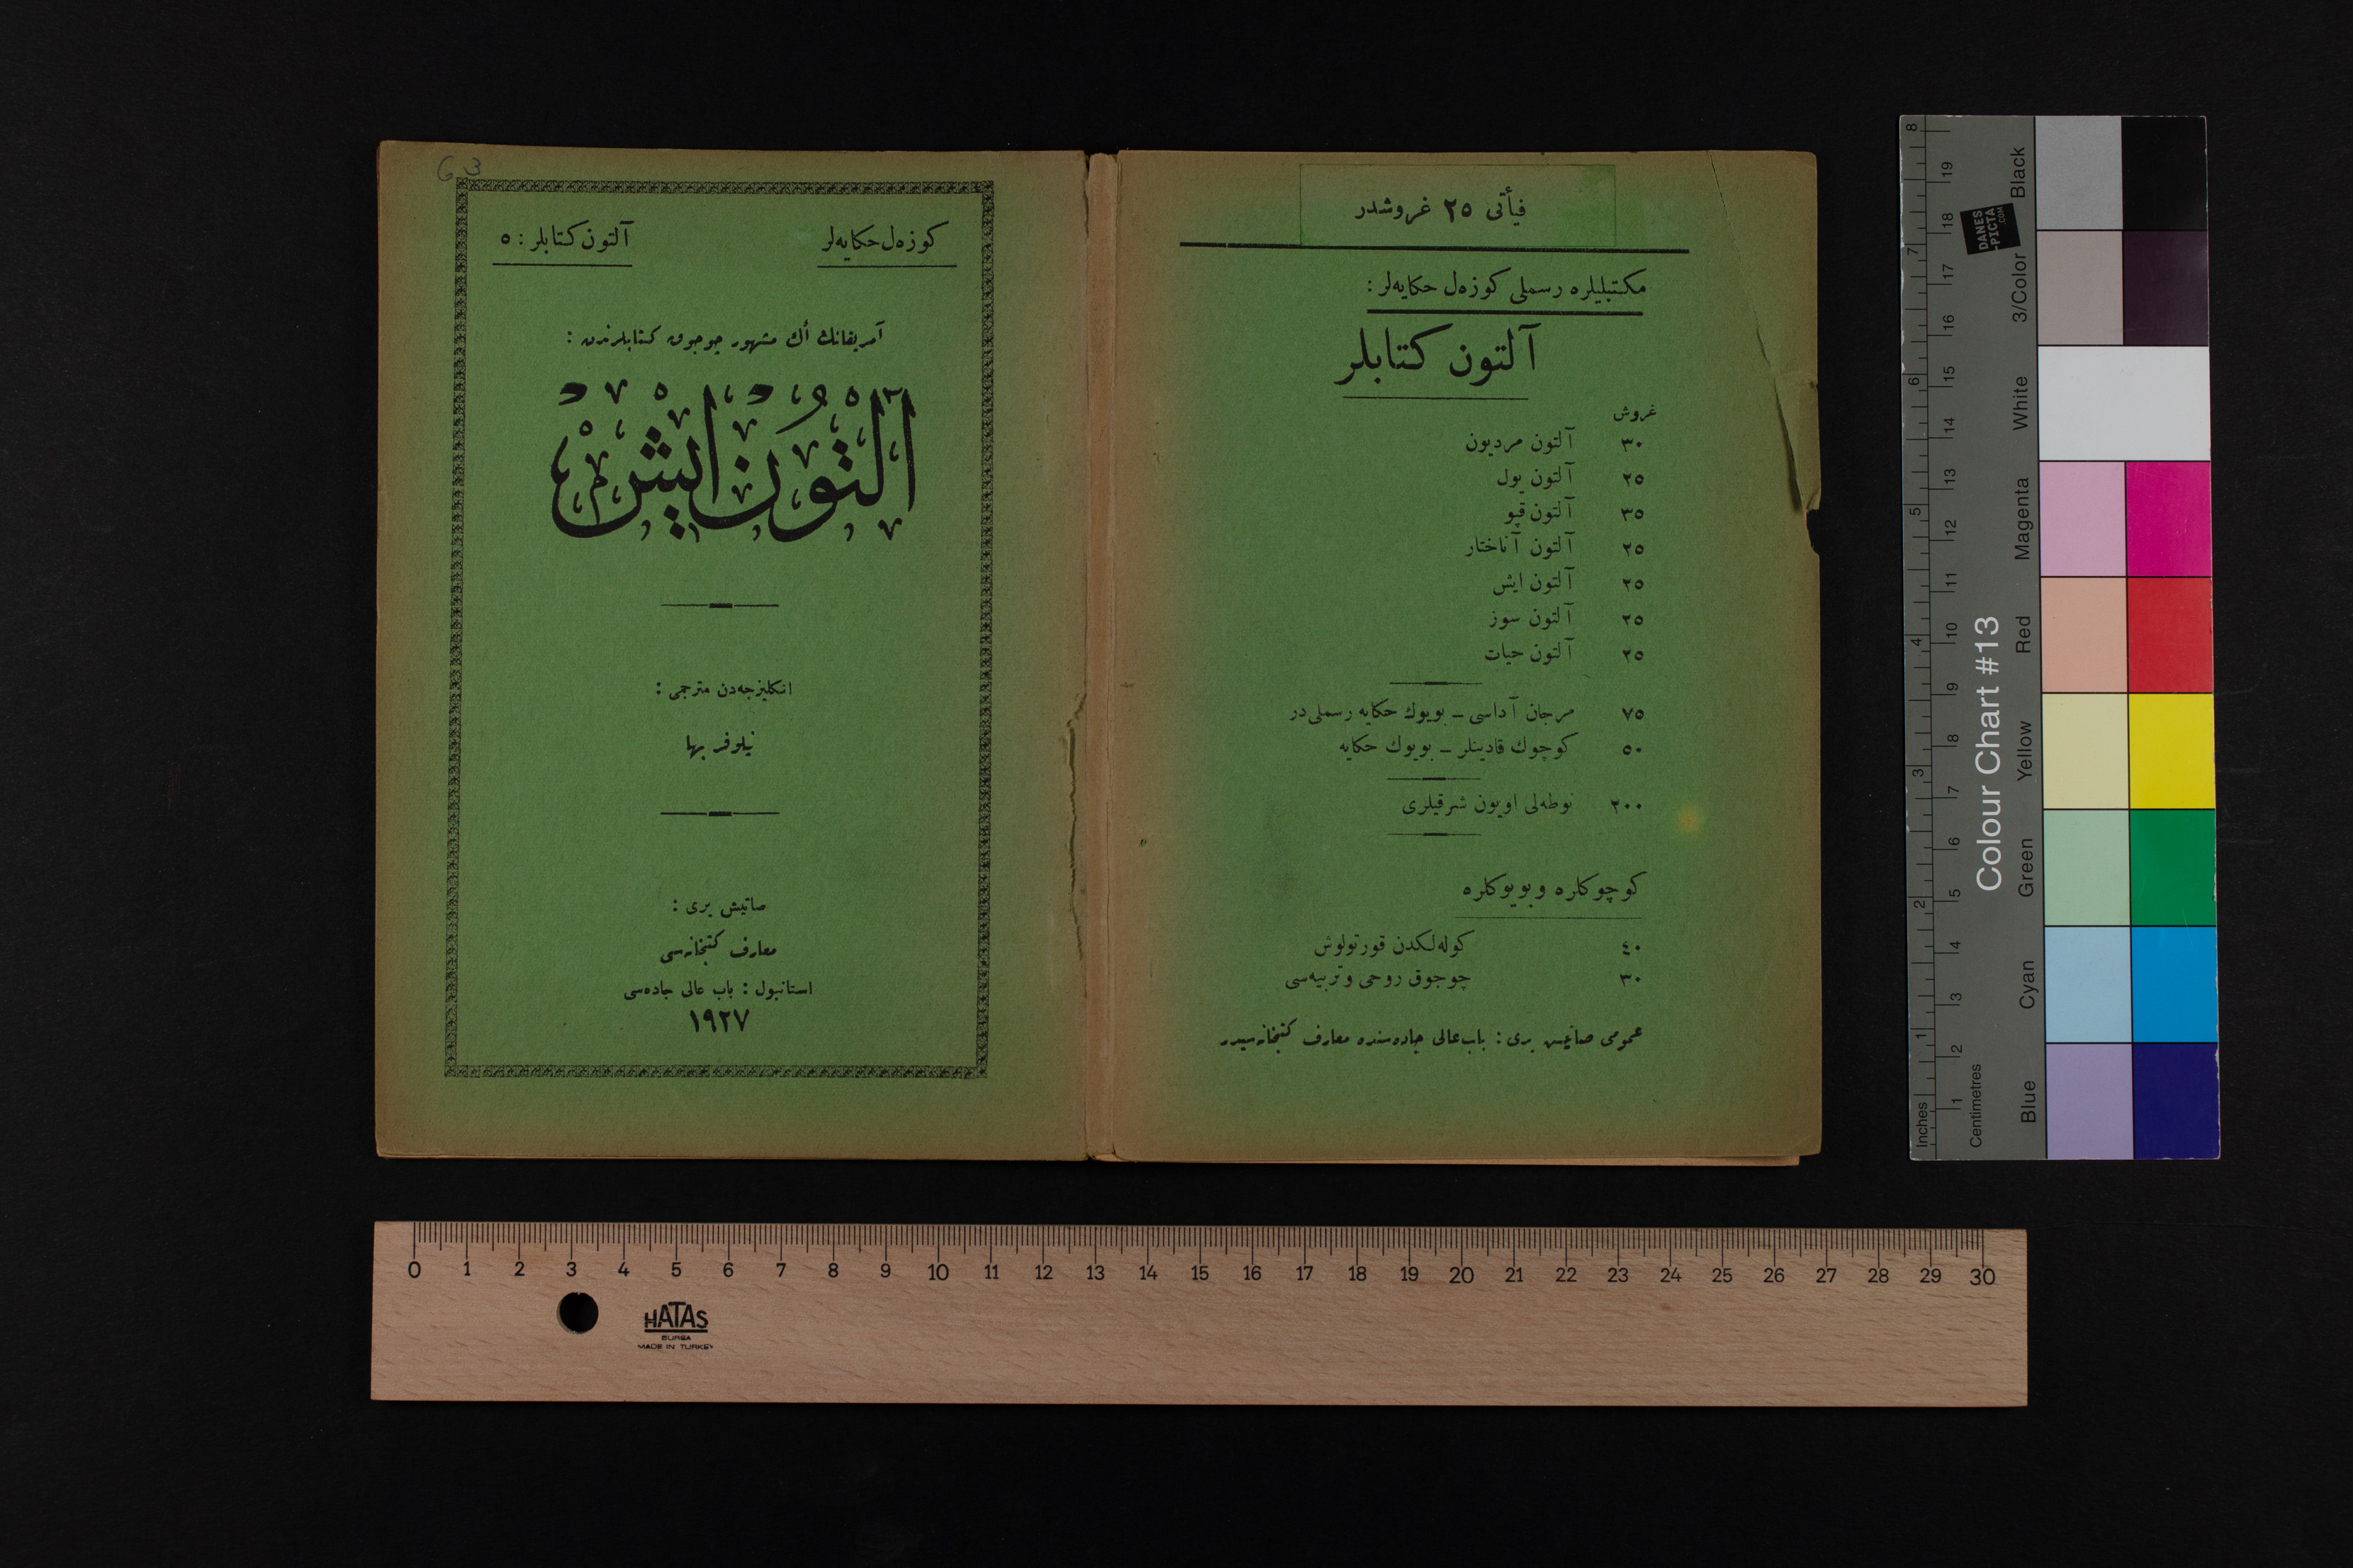 6.3
كوزەل حكایەلر
آلتون كتابلر : ٥
آمریقانك أك مشهور چوجوق كتابلرندن :
آلتون ایش
انكلیزجەدن مترجمی :
نیلوفر بها
صاتیش یری :
معارف كتبخانەسی
استانبول : باب عالی جادەسی
١٩٢٧
فیأتی ٢٥ غروشدر
مكتبلیلرە رسملی كوزەل حكایەلر :
آلتون كتابلر
غروش
٣٠ آلتون مردیون
٢٥ آلتون یول
٣٥ آلتون قپو
٢٥ آلتون آناختار
٢٥ آلتون ایش
٢٥ آلتون سوز
٢٥ آلتون حیات
٧٥ مرجان آداسی – بویوك حكایە رسملی‌در
٥٠ كوچوك قادینلر – بویوك حكایە
٢٠٠ نوطەلی اویون شرقیلری
كوچوكلرە وبویوكلرە
٤٠ كولەلكدن قورتولوش
٣٠ چوجوق روحی وتربیەسی
عمومی صاتیش یری : باب‌عالی جادەسندە معارف كتبخانەسیدر
8 7 6 5 4 3 2 1 Inches
19 18 17 16 15 14 13 12 11 10 9 8 7 6 5 4 3 2 1 Centimetres
DANES
-PICTA
.COM
Colour Chart #13
Blue Cyan Green Yellow Red Magenta White 3/Color Black
0 1 2 3 4 5 6 7 8 9 10 11 12 13 14 15 16 17 18 19 20 21 22 23 24 25 26 27 28 29 30
HATAS
BURSA
MADE IN TURKEY